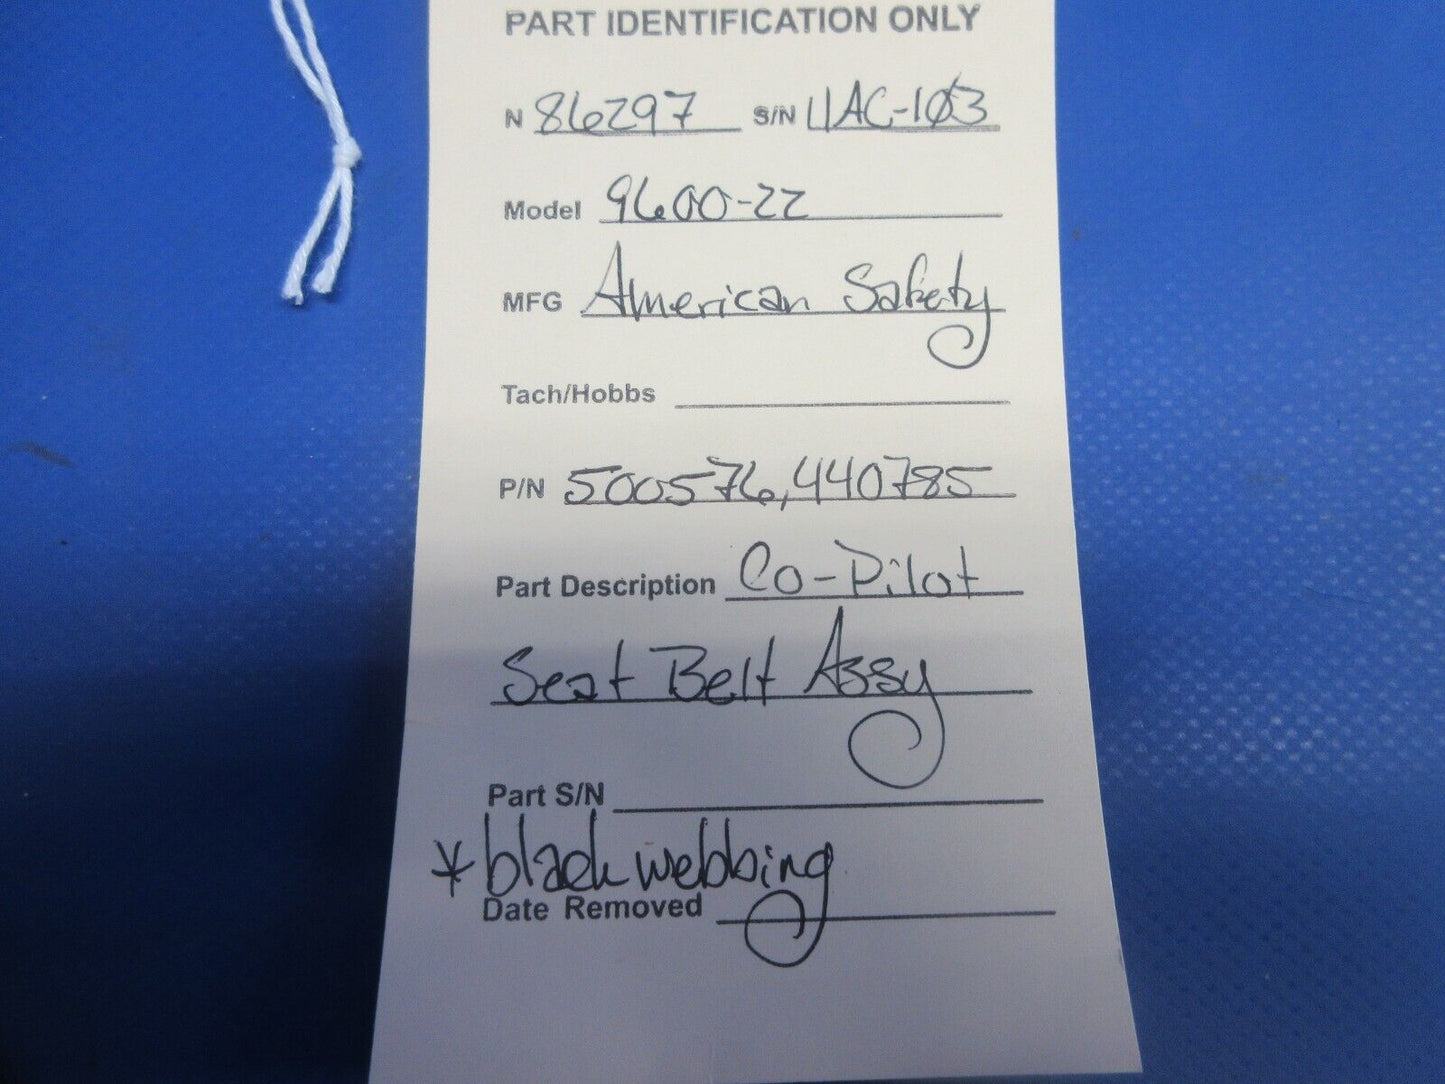 PART IDENTIFICATION ONLY
N 86297 S/N 11AC-103
Model 9600-22
MFG American Safety
Tach/Hobbs
P/N 500576,440785
Part Description Co-Pilot
Seat Belt Assy
Part S/N
*black webbing
Date Removed